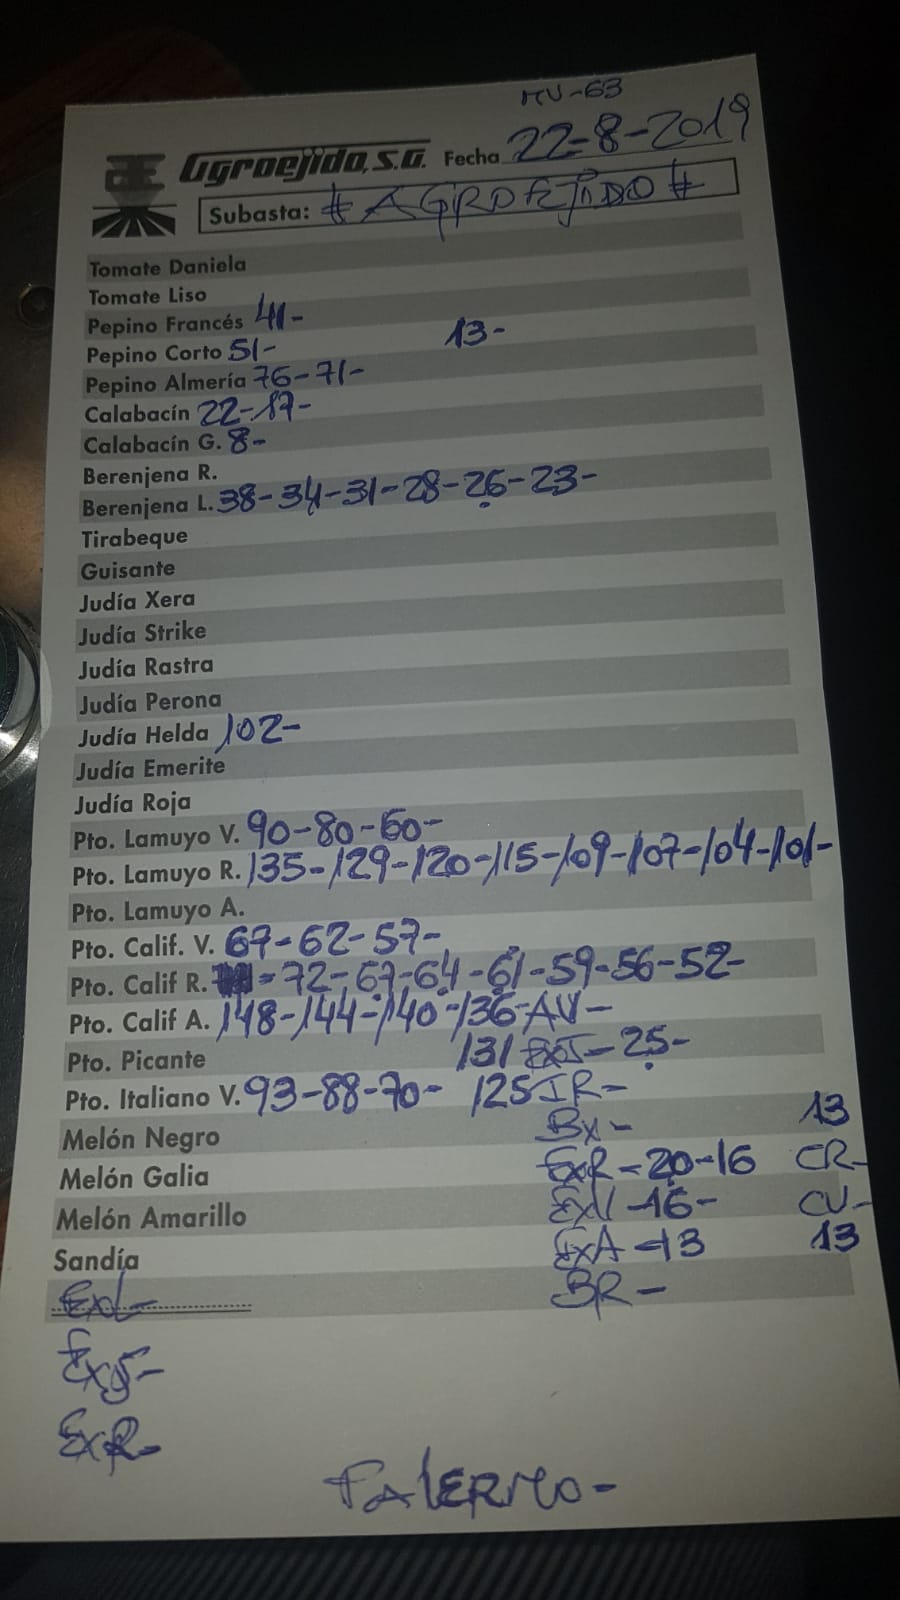 MV-63
Agroejido, S.A. Fecha 22-8-2019
Subasta: # AGROEJIDO #
Tomate Daniela
Tomate Liso
Pepino Francés 41-
Pepino Corto 51- 13-
Pepino Almería 76-71-
Calabacín 22-17-
Calabacín G. 8-
Berenjena R.
Berenjena L. 38-34-31-28-26-23-
Tirabeque
Guisante
Judía Xera
Judía Strike
Judía Rastra
Judía Perona
Judía Helda 102-
Judía Emerite
Judía Roja
Pto. Lamuyo V. 90-80-60-
Pto. Lamuyo R. 135-129-120-115-109-107-104-101-
Pto. Lamuyo A.
Pto. Calif. V. 67-62-57-
Pto. Calif R. =72-67-64-61-59-56-52-
Pto. Calif A. 148-144-140-136-AV-
Pto. Picante 131 -25-
Pto. Italiano V. 93-88-70- 125 IR-
Melón Negro Bx- 13
Melón Galia ExR-20-16 CR-
Melón Amarillo ExV-16- CV-
Sandía ExA-13 13
BR-
ExR-
PALERMO-